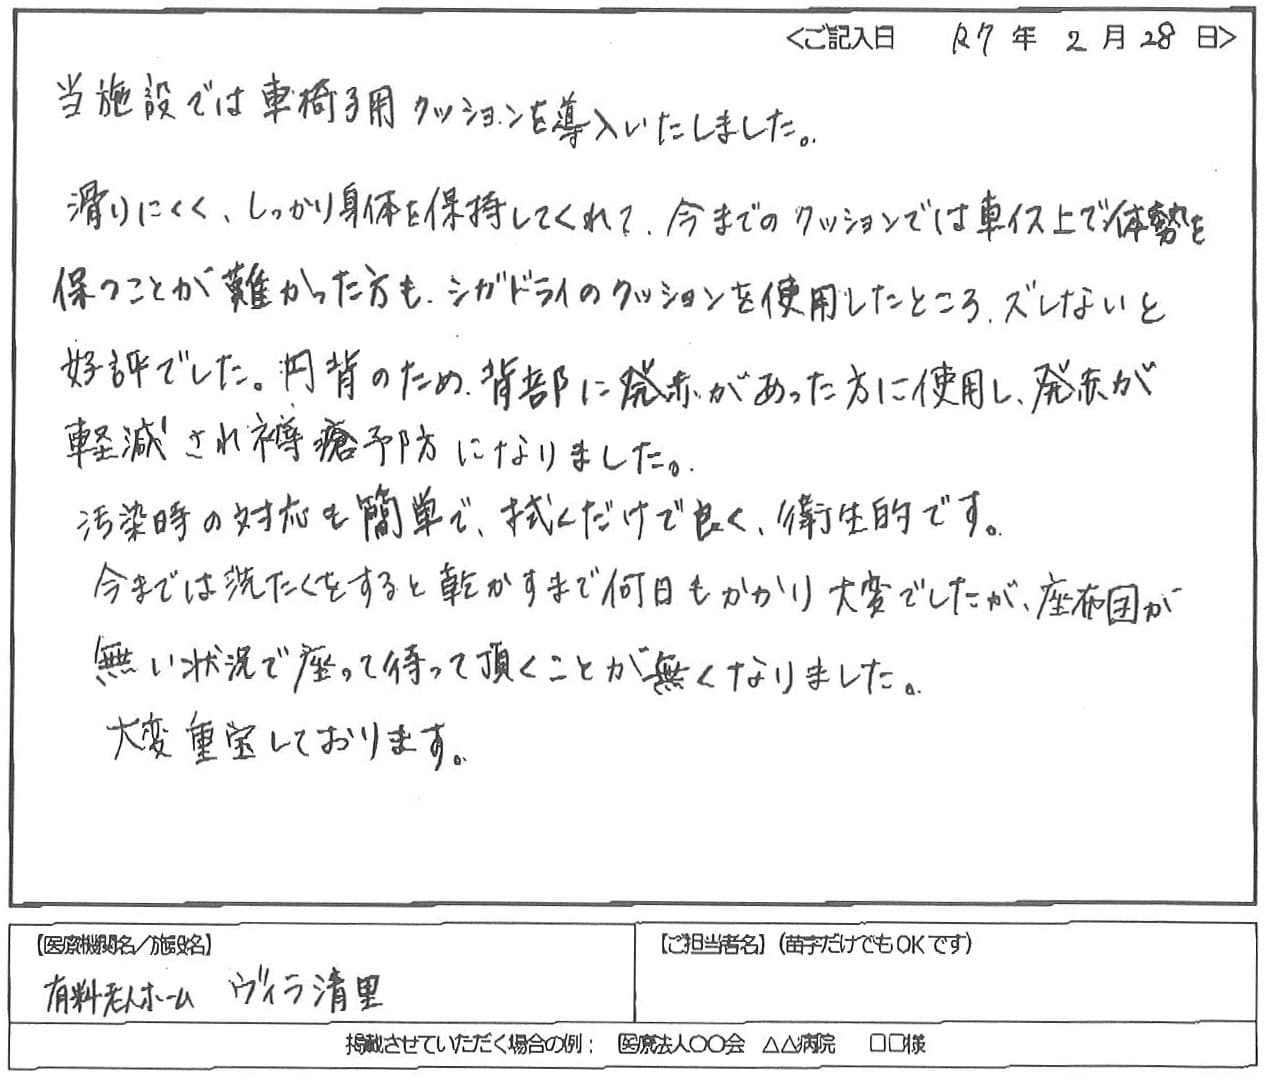 <ご記入日 R7 年 2 月 28 日>
当施設では車椅子用クッションを導入いたしました。
滑りにくく、しっかり身体を保持してくれて、今までのクッションでは車イス上で体勢を
保つことが難かった方も、シガドライのクッションを使用したところ、ズレないと
好評でした。円背のため、背部に発赤があった方に使用し、発赤が
軽減され褥瘡予防になりました。
汚染時の対応も簡単で、拭くだけで良く、衛生的です。
今までは洗たくをすると乾かすまで何日もかかり大変でしたが、座布団が
無い状況で座って待って頂くことが無くなりました。
大変重宝しております。
【医療機関名/施設名】
有料老人ホーム ヴィラ清里
【ご担当者名】(苗字だけでもOKです)
掲載させていただく場合の例: 医療法人〇〇会 △△病院 □□様